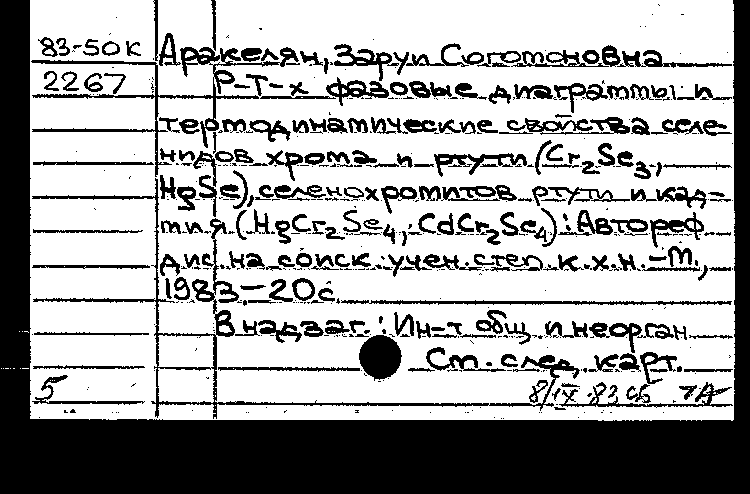 83-50К Аракелян, Заруи Согомоновна
2267 P-T-x фазовые диаграммы и
термодинамические свойства селе-
нидов хрома и ртути (Cr2Se3,
HgSe), селенохромитов ртути и кад-
мия (HgCr2Se4, CdCr2Se4): Автореф
дис. на соиск. учен. степ. к.х.н. -М.,
1983. -20с.
В надзаг.: Ин-т общ. и неорган
См. след. карт.
5 8/IX-83